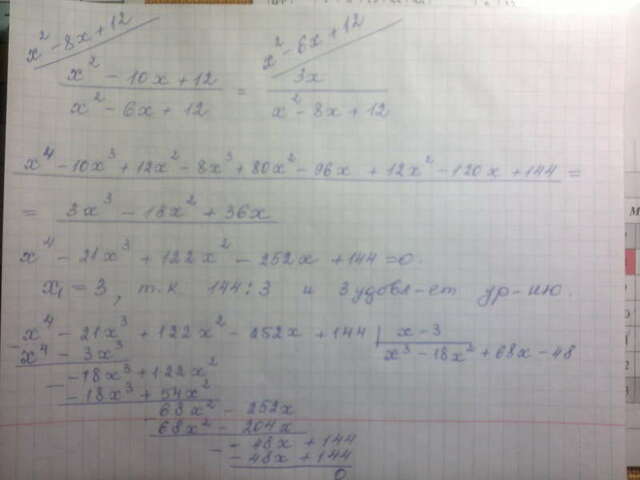 x² - 8x + 12      x² - 6x + 12
x² - 10x + 12 / x² - 6x + 12 = 3x / x² - 8x + 12
x⁴ - 10x³ + 12x² - 8x³ + 80x² - 96x + 12x² - 120x + 144 =
= 3x³ - 18x² + 36x
x⁴ - 21x³ + 122x² - 252x + 144 = 0.
x₁ = 3, т.к 144:3 и 3 удовл-ет ур-ию.
x⁴ - 21x³ + 122x² - 252x + 144 | x - 3
x⁴ - 3x³      x³ - 18x² + 68x - 48
-18x³ + 122x²
-18x³ + 54x²
68x² - 252x
68x² - 204x
-48x + 144
-48x + 144
0
M